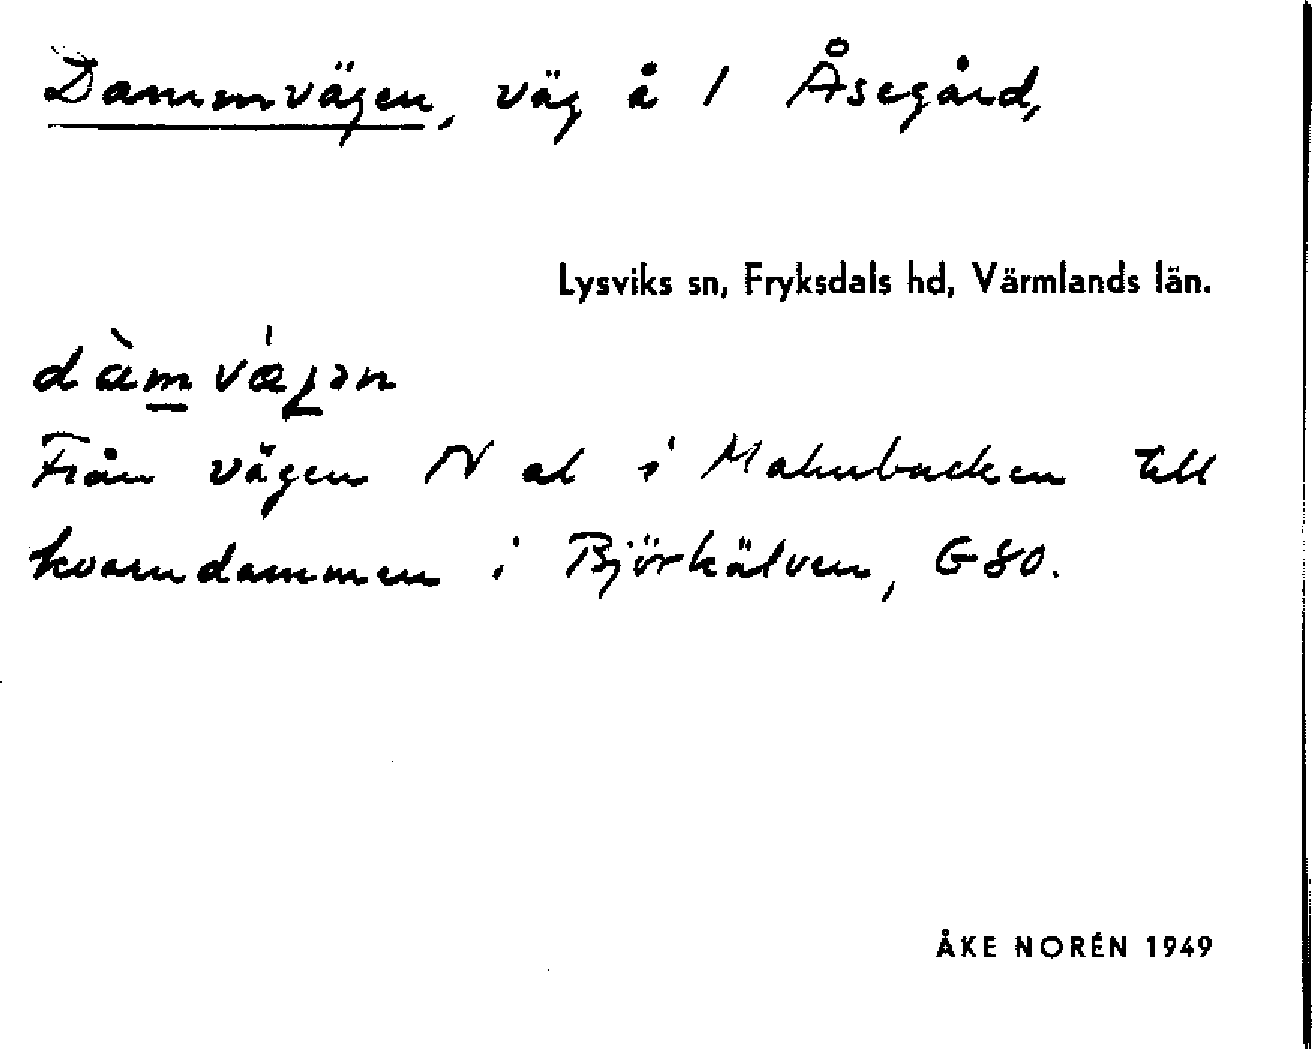 Dammvägen, väg å 1 Åsegård,
Lysviks sn, Fryksdals hd, Värmlands län.
Från vägen N ut i Malmbacken till
kvarndammen i Björkälven, G80.
ÅKE NORÉN 1949